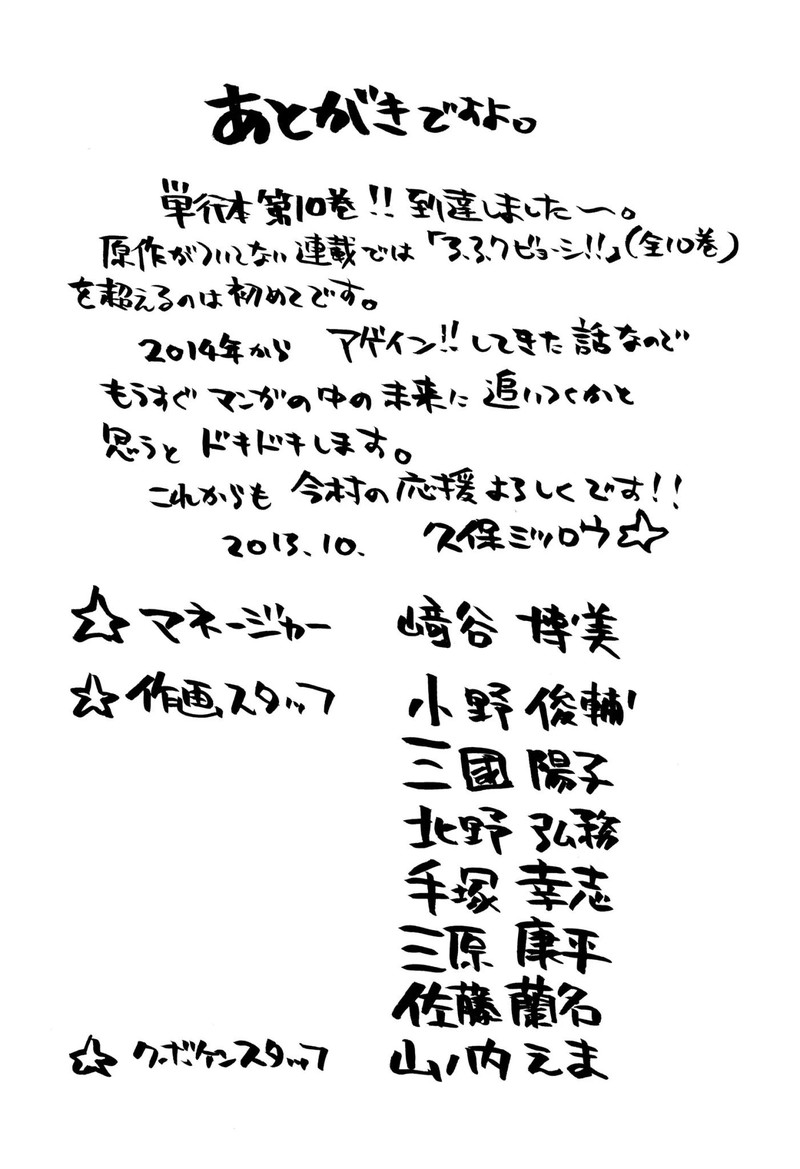 あとがきですよ。
単行本第10巻!!到達しました〜。
原作がついてない連載では「3.3.7ビョーシ!!」(全10巻)
を超えるのは初めてです。
2014年から アゲイン!!してきた話なので
もうすぐマンガの中の未来に追いつくかと
思うとドキドキします。
これからも 今村の応援よろしくです!!
2013.10. 久保ミツロウ☆
☆マネージャー 﨑谷 博美
☆作画スタッフ 小野 俊輔
三國 陽子
北野 弘務
手塚 幸志
三原 康平
佐藤 蘭名
☆クボケンスタッフ 山ノ内えま